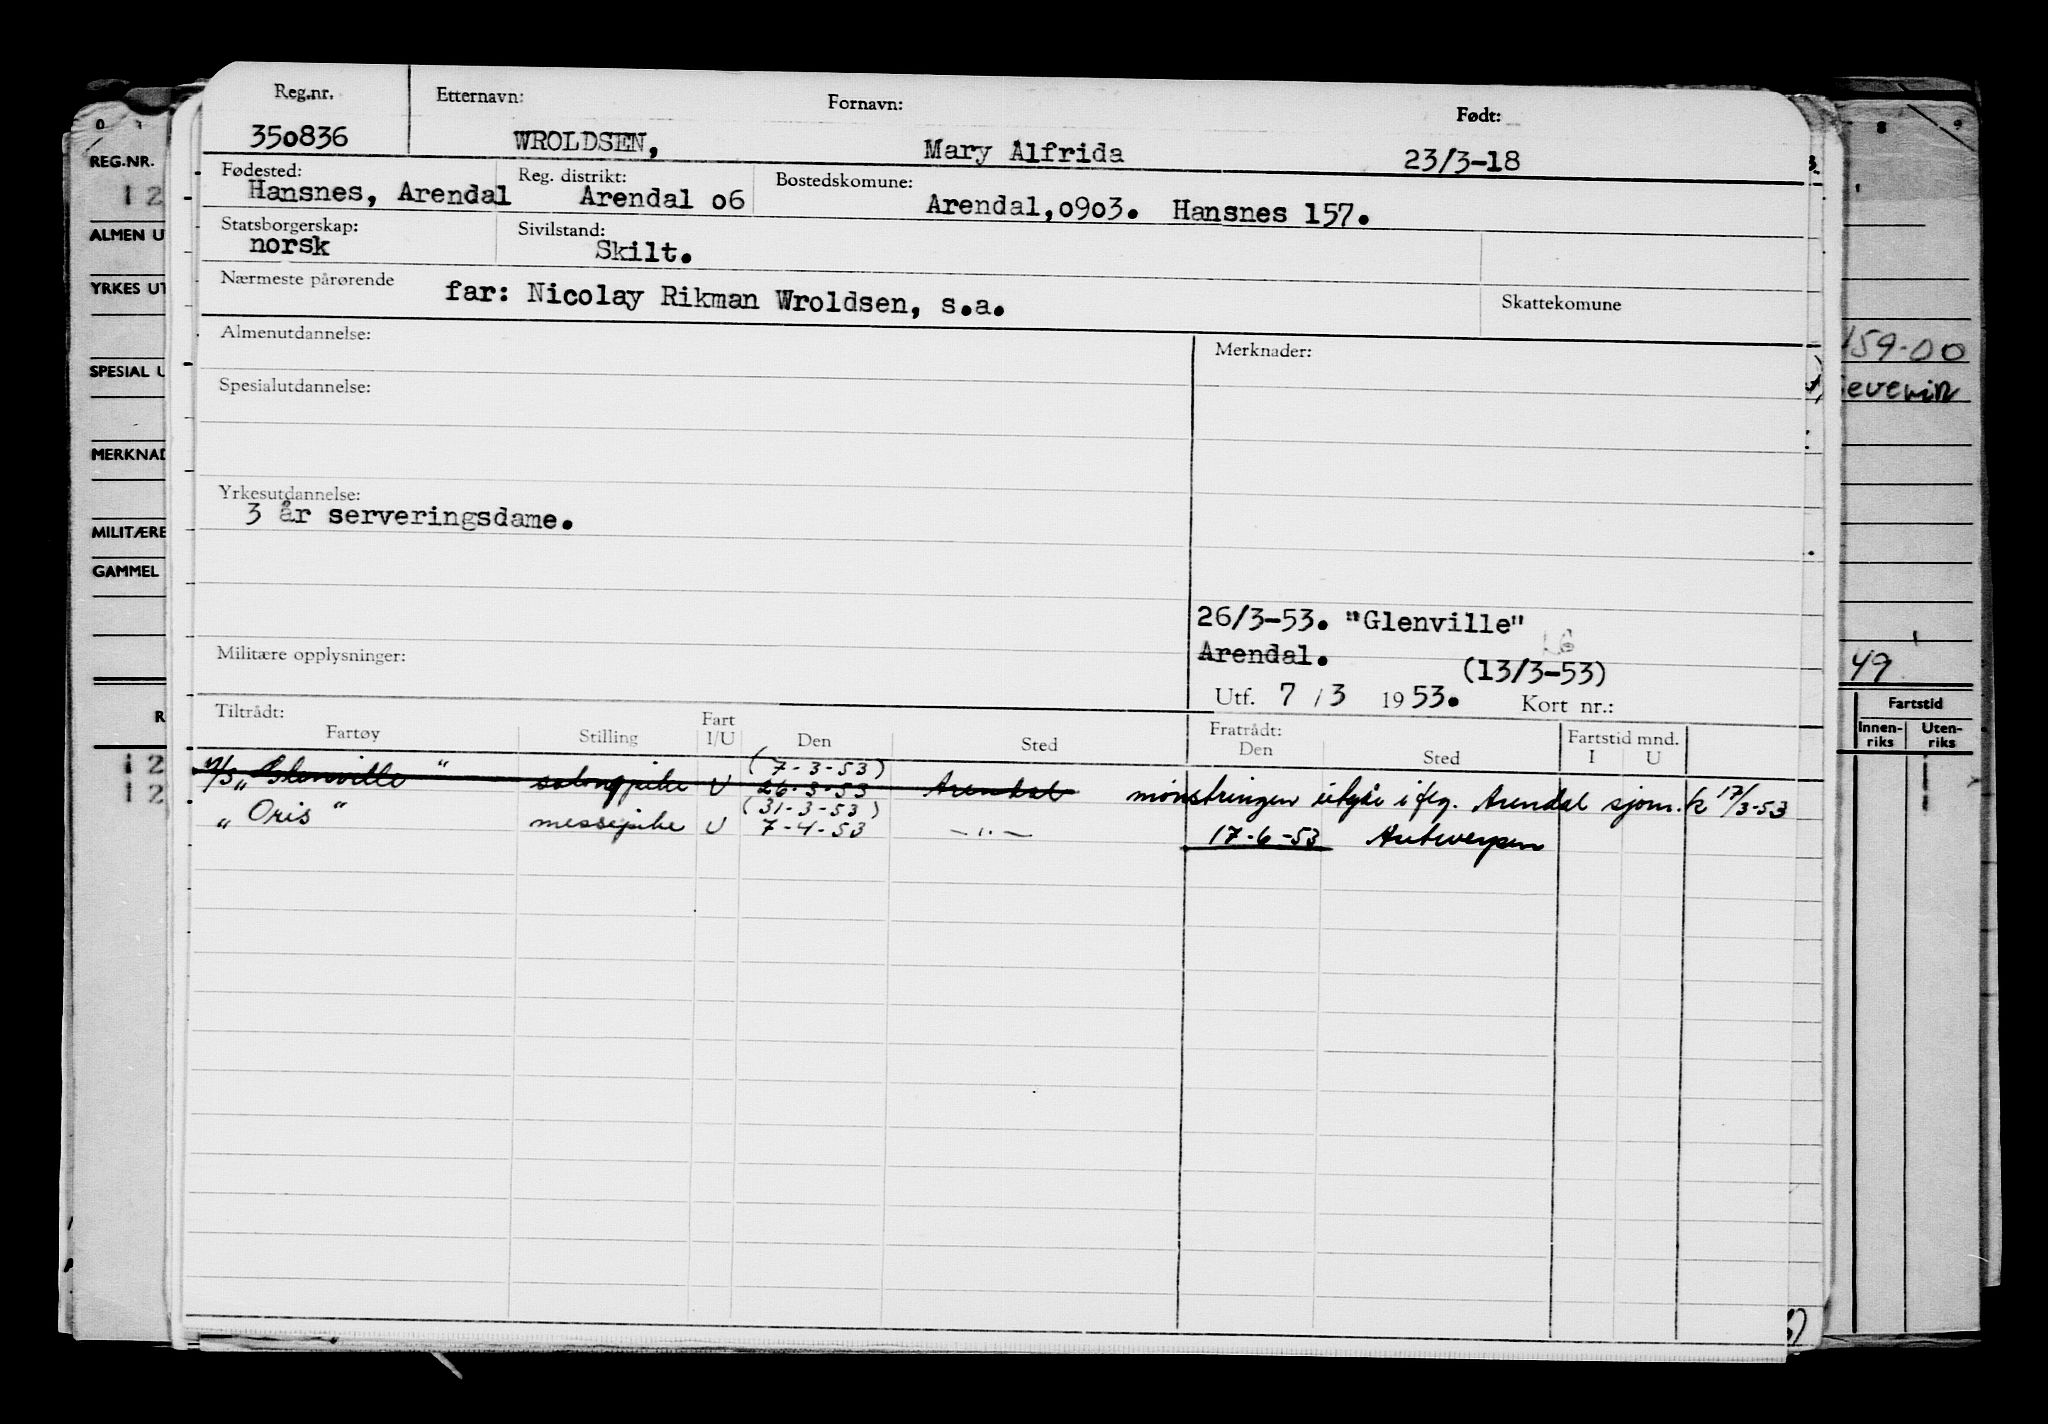 Reg.nr. Etternavn: Fornavn: Født:
350836 WROLDSEN, Mary Alfrida 23/3-18
Fødested: Reg. distrikt: Bostedskomune:
Hansnes, Arendal Arendal 06 Arendal,0903. Hansnes 157.
Statsborgerskap: Sivilstand:
norsk Skilt.
Nærmeste pårørende far: Nicolay Rikman Wroldsen, s.a. Skattekomune
Almenutdannelse: Merknader:
Spesialutdannelse:
Yrkesutdannelse:
3 år serveringsdame.
26/3-53. "Glenville"
Militære opplysninger: Arendal. (13/3-53)
Utf. 7 / 3 1953. Kort nr.:
Tiltrådt: Fratrådt:
Fartøy Stilling Fart I/U Den Sted Den Sted Fartstid mnd. I U
(7-3-53)
M/S „Glenville" salongpike U 26-3-53 Arendal mønstringen utgår i flg. Arendal sjøm.k 17/3-53
(31-3-53)
„ Oris " messepike U 7-4-53 —"— 17-6-53 Antwerpen
REG.NR.
12
ALMEN U
YRKES UT
SPESIAL U
MERKNAD
MILITÆRE
GAMMEL
R
12
12
8 9
159-00
everin
49
Fartstid
Innen-riks Uten-riks